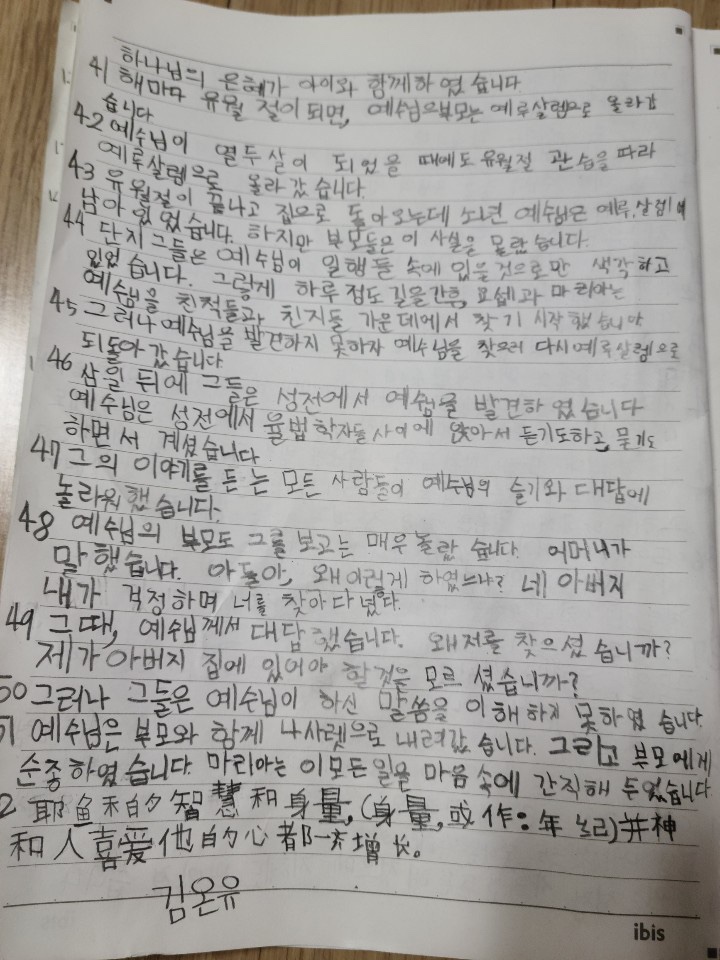 하나님의 은혜가 아이와 함께하였습니다
41 해마다 유월절이되면, 예수님으부모는 예루살렘으로 올라갔
습니다
42 예수님이 열두살이 되었을 때에도 유월절 관습을 따라
예루살렘으로 올라 갔습니다.
43 유월절이 끝나고 집으로 돌아오는데 소년 예수님은 예루살렘에
남아있었습니다. 하지만 부모들은 이 사실을 몰랐습니다.
44 단지 그들은 예수님이 일행들 속에 있을것으로만 생각하고
있었습니다. 그렇게 하루정도 길을간후, 요셉과 마리아는
예수님을 친척들과 친지들 가운데에서 찾기 시작했습니다
45 그러나 예수님을 발견하지 못하자 예수님을 찾으러 다시예루살렘으로
되돌아갔습니다
46 삼일 뒤에 그들은 성전에서 예수님을 발견하였습니다
예수님은 성전에서 율법학자들 사이에 앉아서 듣기도하고, 묻기도
하면서 계셨습니다
47 그의 이야기를 듣는 모든 사람들이 예수님의 슬기와 대답에
놀라워했습니다.
48 예수님의 부모도 그를 보고는 매우 놀랐습니다. 어머니가
말했습니다. 아들아, 왜이렇게 하였느냐? 네 아버지
내가 걱정하며 너를 찾아다녔다.
49 그때, 예수님께서 대답했습니다. 왜저를 찾으셨습니까?
제가 아버지 집에 있어야 할것을 모르셨습니까?
50 그러나 그들은 예수님이 하신 말씀을 이해하지 못하였습니다.
51 예수님은 부모와 함께 나사렛으로 내려갔습니다. 그리고 부모에게
순종하였습니다. 마리아는 이모든일을 마음속에 간직해 두었습니다
2 耶鱼禾的智慧和身量,(身量,或作:年纪)并神
和人喜爱他的心都一齐增长。
김온유
ibis